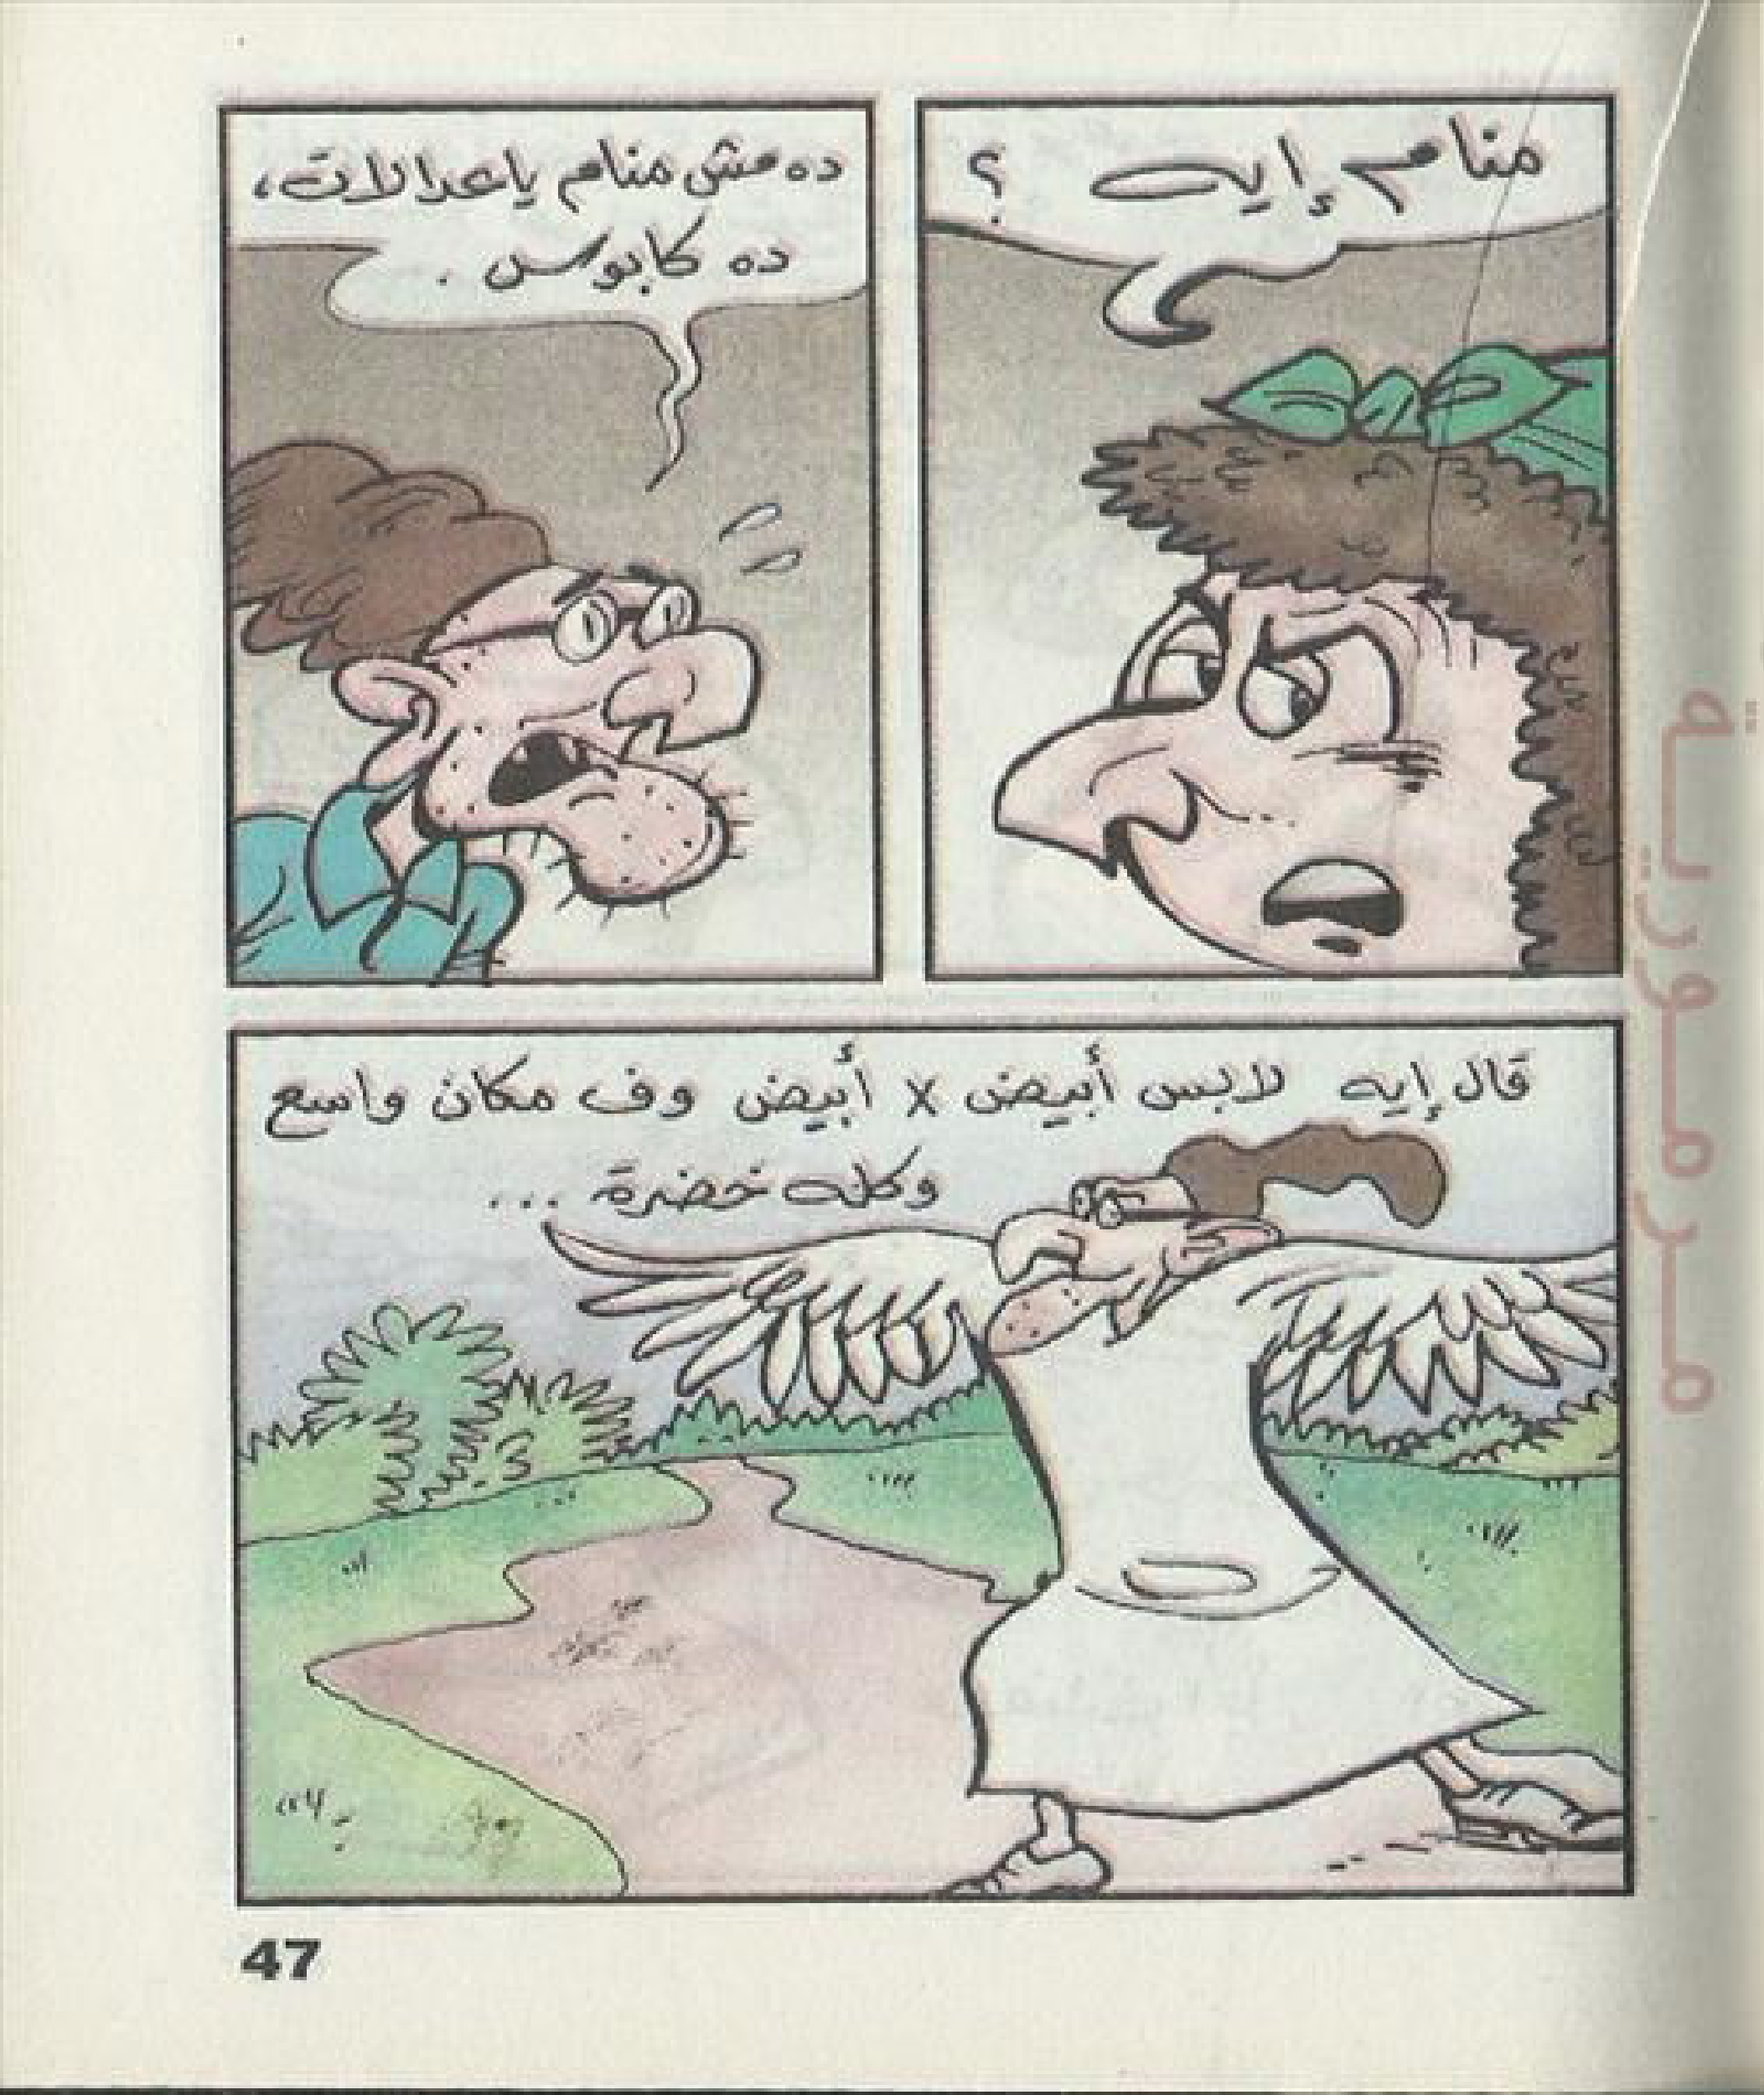 منام إيه ؟
ده مش منام يا عدالات،
ده كابوس .
قال إيه لابس أبيض x أبيض وف مكان واسع
وكله خضرة ...
47